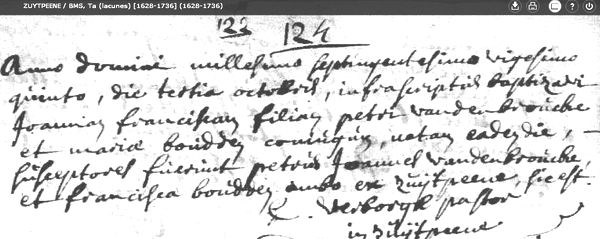 ZUYTPEENE / BMS, Ta (lacunes) [1628-1736] (1628-1736)
123 124
Anno domini millesimo septingentesimo vigesimo
quinto, die tertia octobris, infrascriptus baptizavi
Joannam franciscam filiam petri vandenbroucke
et mariæ boudden coniugum, natam eadem die,
susceptores fuerunt petrus Joannes vandenbroucke,
et francisca boudden ambo ex Zuijtpeene, sic est.
pastor
in Zuijtpeene